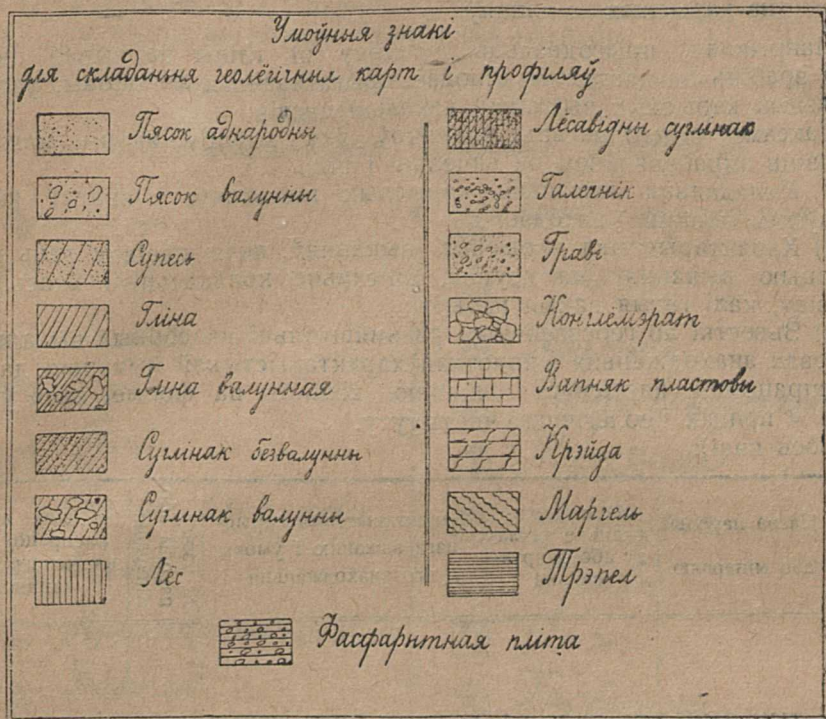 Умоўныя знакі
для складаньня геолёгічных карт і профіляў
Пясок аднародны
Пясок валунны
Супесь
Гліна
Гліна валунная
Суглінак безвалунны
Суглінак валунны
Лёс
Лёсавідны суглінак
Галечнік
Гравій
Конглемэрат
Вапняк пластовы
Крэйда
Маргель
Трэпел
Фасфарытная пліта